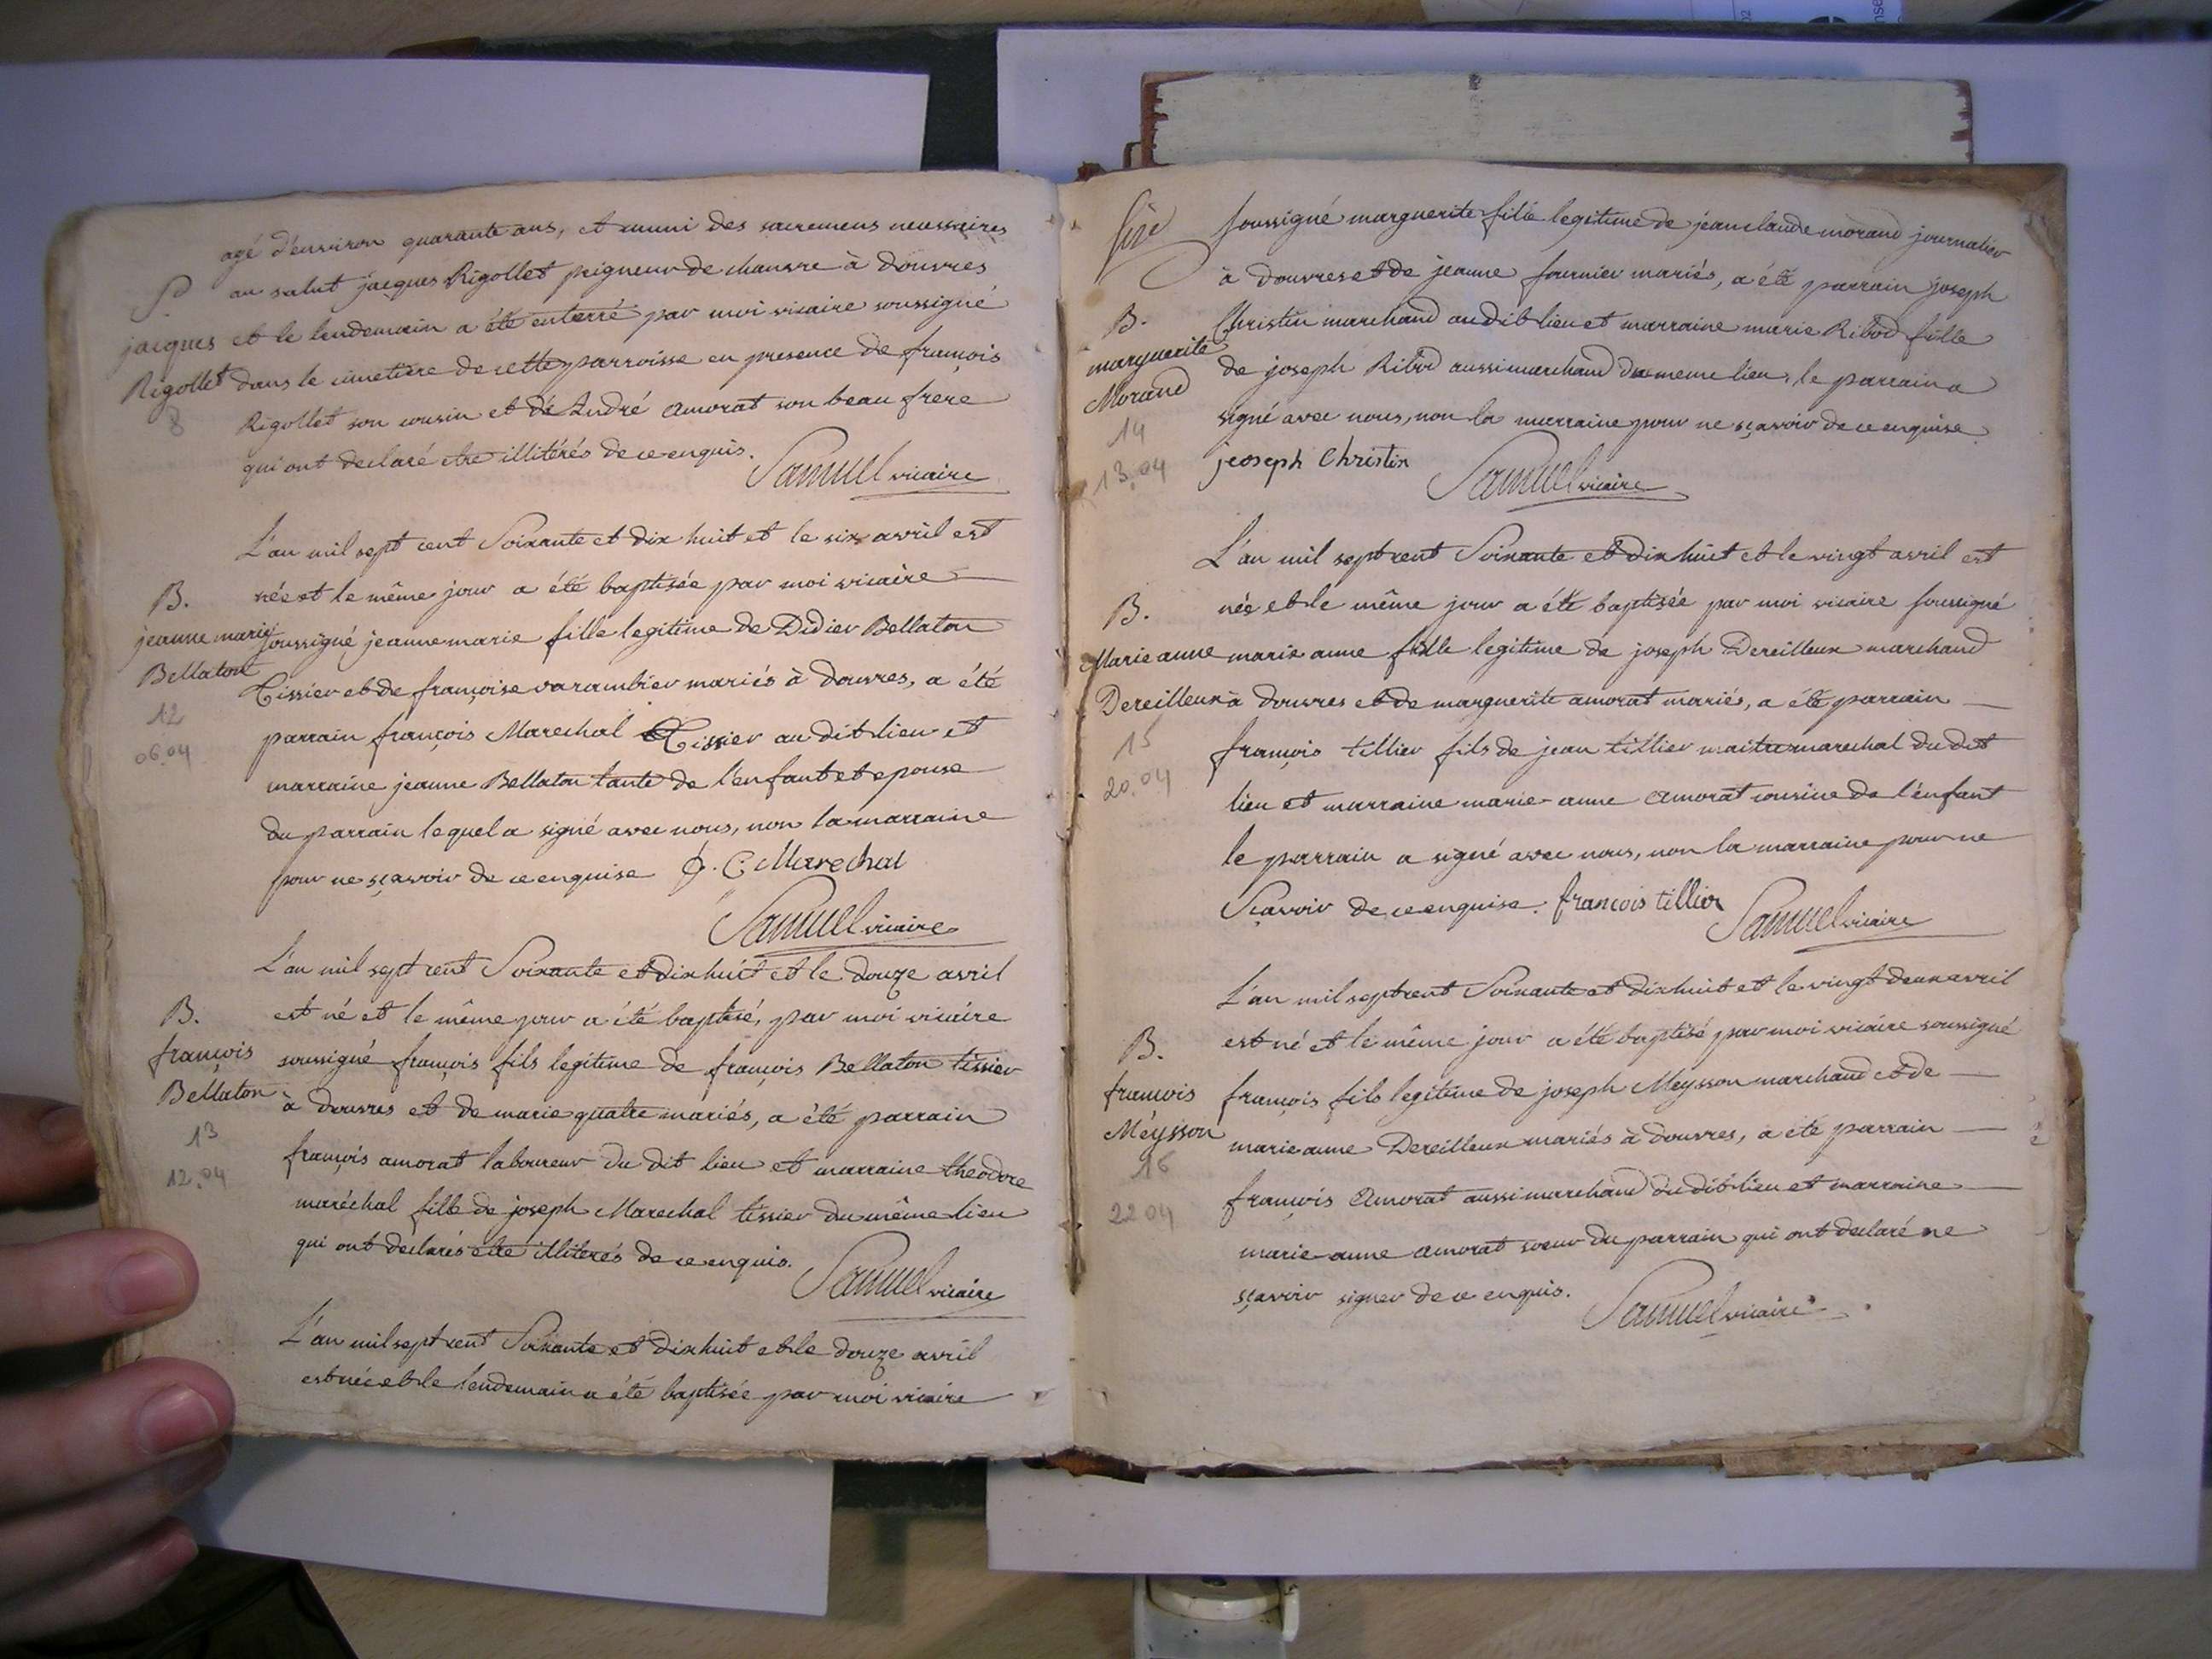 agé d'environ quarante ans, et muni des sacremens necessaires
S
au salut jacques Rigollet peigneur de chanvre à douvres
jacques
et le lendemain a été enterré par moi vicaire soussigné
Rigollet
dans le cimetière de cette parroisse en presence de françois
8
Rigollet son cousin et de André amorat son beau frere
qui ont declaré etre illitérés de ce enquis.
Samuel vicaire
L'an mil sept cent Soixante et dix huit et le six avril est
B.
née et le même jour a été baptisée par moi vicaire
jeanne marie
soussigné jeanne marie fille legitime de Didier Bellaton
Bellaton
Tissier et de françoise varambier mariés à douvres, a été
12
parrain françois Marechal Tissier au dit lieu et
06.04
marraine jeanne Bellaton tante de l'enfant et epouse
du parrain lequel a signé avec nous, non la marraine
pour ne sçavoir de ce enquise Marechal
Samuel vicaire
L'an mil sept cent Soixante et dix huit et le douze avril
B.
est né et le même jour a été baptisé, par moi vicaire
françois
soussigné françois fils legitime de françois Bellaton tissier
Bellaton
à douvres et de marie quatre mariés, a été parrain
13
françois amorat laboureur du dit lieu et marraine theodore
12.04
maréchal fille de joseph Marechal tissier du même lieu
qui ont déclarés etre illiterés de ce enquis.
Samuel vicaire
L'an mil sept cent Soixante et dix huit et le douze avril
est née et le lendemain a été baptisée par moi vicaire
soussigné marguerite fille legitime de jean claude morand journalier
à douvres et de jeanne fournier mariés, a été parrain joseph
B.
Christin marchand au dit lieu et marraine marie Ribod fille
marguerite
de joseph Ribod aussi marchand du meme lieu, le parrain a
Morand
signé avec nous, non la marraine pour ne sçavoir de ce enquise
14
13.04
joseph Christin
Samuel vicaire
L'an mil sept cent Soixante et dix huit et le vingt avril est
B.
née et le même jour a été baptisée par moi vicaire soussigné
Marie anne
marie anne fille legitime de joseph Dereilleux marchand
Dereilleux
à douvres et de marguerite amorat mariés, a été parrain
15
françois tillier fils de jean tillier maitre marechal du dit
20.04
lieu et marraine marie-anne amorat cousine de l'enfant
le parrain a signé avec nous, non la marraine pour ne
Sçavoir de ce enquise. francois tillier
Samuel vicaire
L'an mil sept cent Soixante et dix huit et le vingt deux avril
B.
est né et le même jour a été baptisé par moi vicaire soussigné
francois
françois fils legitime de joseph Meysson marchand et de
Méysson
marie anne Dereilleux mariés à douvres, a été parrain
16
françois amorat aussi marchand du dit lieu et marraine
22 04
marie-anne amorat soeur du parrain qui ont declaré ne
sçavoir signer de ce enquis.
Samuel vicaire